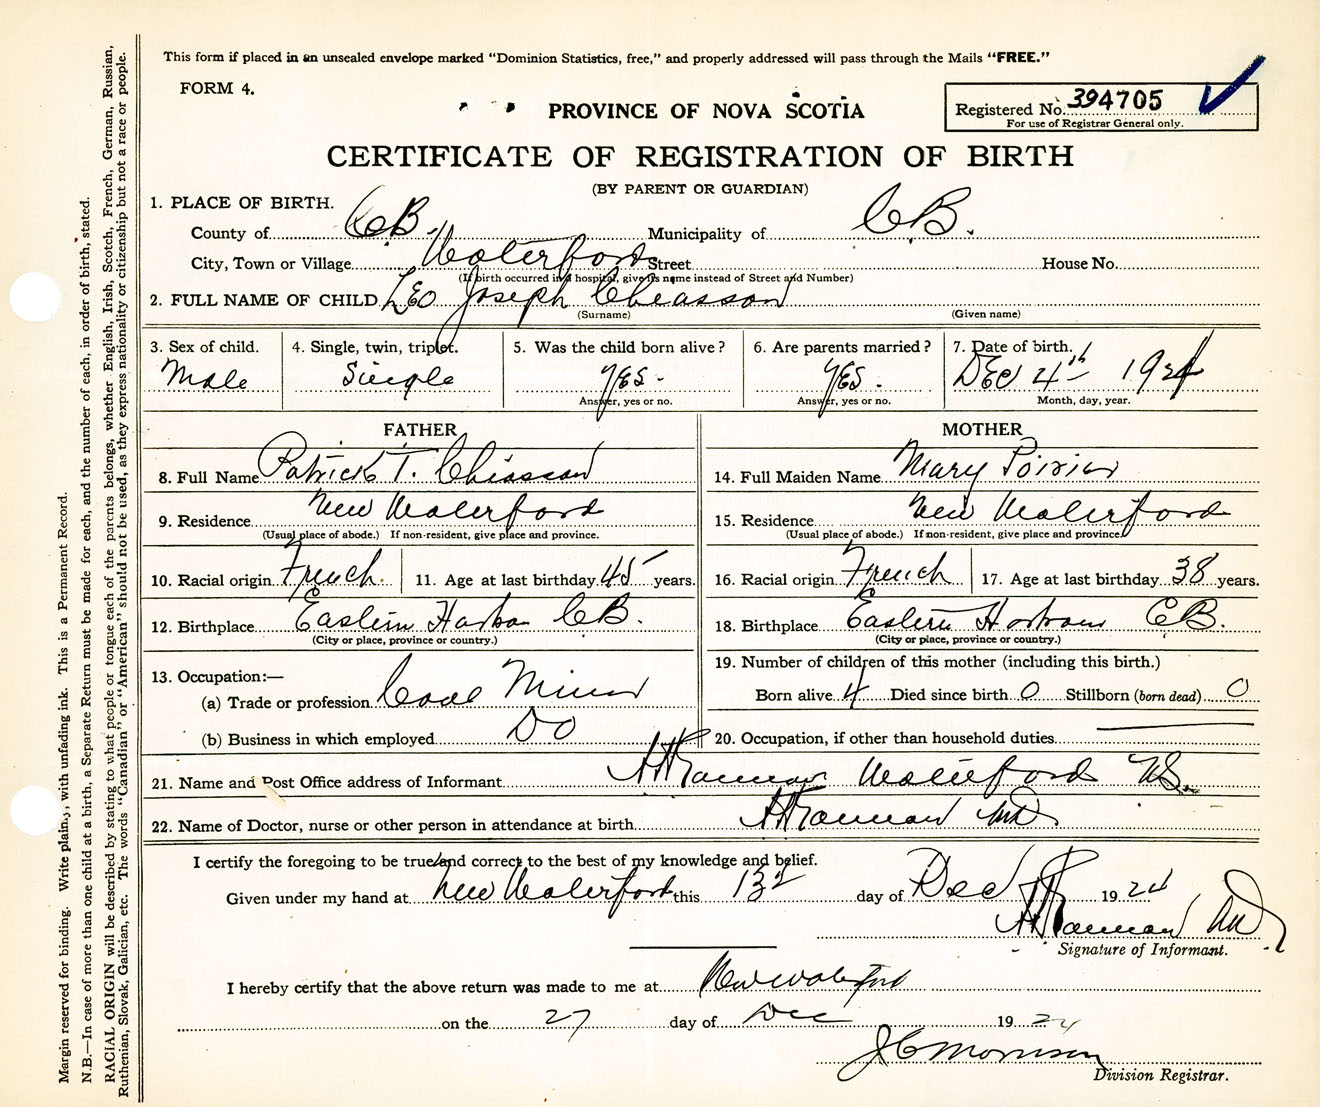 This form if placed in an unsealed envelope marked "Dominion Statistics, free," and properly addressed will pass through the Mails "FREE."
FORM 4.
PROVINCE OF NOVA SCOTIA
Registered No. 394705
For use of Registrar General only.
CERTIFICATE OF REGISTRATION OF BIRTH
(BY PARENT OR GUARDIAN)
1. PLACE OF BIRTH.
County of CB. Municipality of CB.
City, Town or Village Waterford Street House No.
(If birth occurred in a hospital, give its name instead of Street and Number)
2. FULL NAME OF CHILD Leo Joseph Chiasson
(Surname) (Given name)
3. Sex of child. 4. Single, twin, triplet. 5. Was the child born alive? 6. Are parents married? 7. Date of birth.
Male Single YES. YES. DEC 4th 1924
Answer, yes or no. Answer, yes or no. Month, day, year.
FATHER MOTHER
8. Full Name Patrick T. Chiasson 14. Full Maiden Name Mary Poirier
9. Residence New Waterford 15. Residence New Waterford
(Usual place of abode.) If non-resident, give place and province. (Usual place of abode.) If non-resident, give place and province.
10. Racial origin French. 11. Age at last birthday 45 years. 16. Racial origin French 17. Age at last birthday 38 years.
12. Birthplace Eastern Harbor CB. 18. Birthplace Eastern Harbour CB.
(City or place, province or country.) (City or place, province or country.)
13. Occupation:— 19. Number of children of this mother (including this birth.)
(a) Trade or profession Coal Miner Born alive 4 Died since birth 0 Stillborn (born dead) 0
(b) Business in which employed DO 20. Occupation, if other than household duties
21. Name and Post Office address of Informant Waterford NS.
22. Name of Doctor, nurse or other person in attendance at birth MD.
I certify the foregoing to be true and correct to the best of my knowledge and belief.
Given under my hand at New Waterford this 13th day of Dec 1924
MD
Signature of Informant.
I hereby certify that the above return was made to me at New Waterford
on the 27 day of Dec 1924
J C Morrison
Division Registrar.
Margin reserved for binding. Write plainly, with unfading ink. This is a Permanent Record.
N.B.—In case of more than one child at a birth, a Separate Return must be made for each, and the number of each, in order of birth, stated.
RACIAL ORIGIN will be described by stating to what people or tongue each of the parents belongs, whether English, Irish, Scotch, French, German, Russian,
Ruthenian, Slovak, Galician, etc. The words "Canadian" or "American" should not be used, as they express nationality or citizenship but not a race or people.